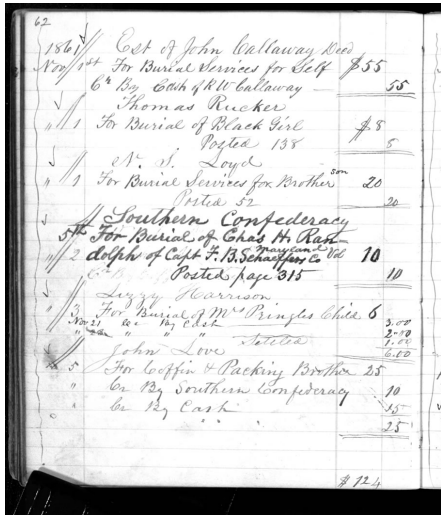 62
1861 // Est of John Callaway Decd
Nov // 1st For Burial Services for Self $55
Cr By Cash of R W Callaway — 55
// Thomas Rucker
" 1 For Burial of Black Girl $8
Posted 138 8
// N. S. Loyd
" 1 For Burial Services for Brother son 20
Posted 52 20
// Southern Confederacy
5th For Burial of Chas H. Ran-
" 2 dolph of Capt F. B. Schaeffers Co Maryland Vol 10
Posted page 315 10
// Lizzy Harrison
" 3 For Burial of Mrs Pringles Child 6
Nov 21 By Cash 3.00
" " " 2.00
Settled 1.00
6.00
John Love
" 5 For Coffin & Packing Brother 25
" Cr By Southern Confederacy 10
" Cr By Cash 15
25
$124